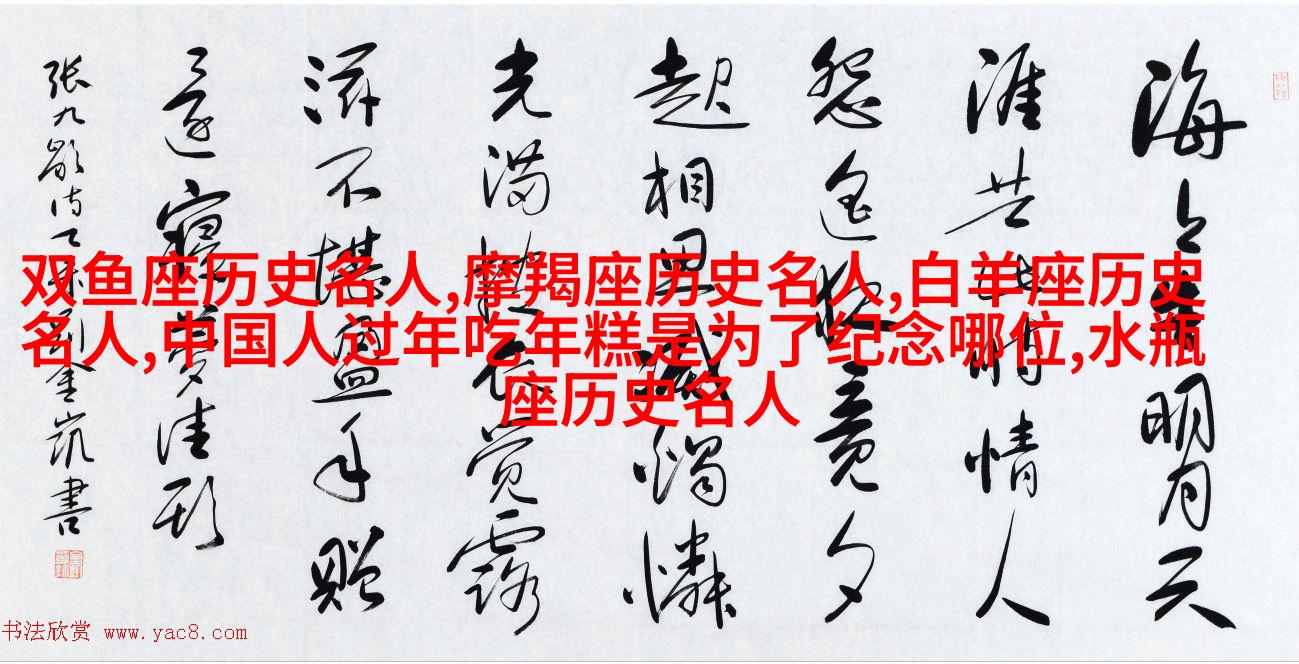 双鱼座历史名人,摩羯座历史名人,白羊座历史
名人,中国人过年吃年糕是为了纪念哪位,水瓶
座历史名人
海上生明月天
涯共此时情人
怨遥夜竟夕
起相思灭烛怜
光满披衣觉露
滋不堪盈手赠
还寝梦佳期
张九龄诗金凯書
书法欣赏 www.yac8.com